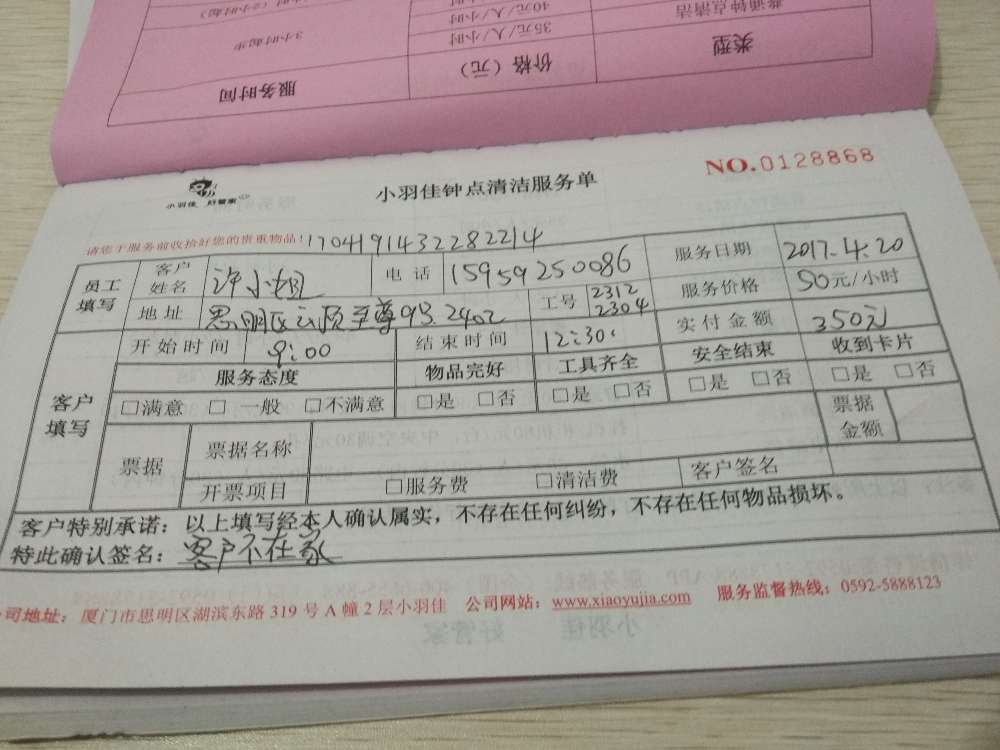 类型 价格（元） 服务时间
35元/人/小时 3小时起步
钟点清洁 40元/人/小时
小羽佳 好管家
小羽佳钟点清洁服务单
NO.0128868
请您于服务前收拾好您的贵重物品！1704191432282214
员工填写 客户姓名 许小姐 电话 15959250086 服务日期 2017.4.20
地址 思明区云顶至尊93.2402 工号 2312 2304 服务价格 50元/小时
客户填写 开始时间 9:00 结束时间 12:30 实付金额 350元
服务态度 物品完好 工具齐全 安全结束 收到卡片
□满意 □一般 □不满意 □是 □否 □是 □否 □是 □否 □是 □否
票据 票据名称 票据金额
开票项目 □服务费 □清洁费 客户签名
客户特别承诺：以上填写经本人确认属实，不存在任何纠纷，不存在任何物品损坏。
特此确认签名：客户不在家
司地址：厦门市思明区湖滨东路319号A幢2层小羽佳 公司网站：www.xiaoyujia.com 服务监督热线：0592-5888123
小羽佳 好管家